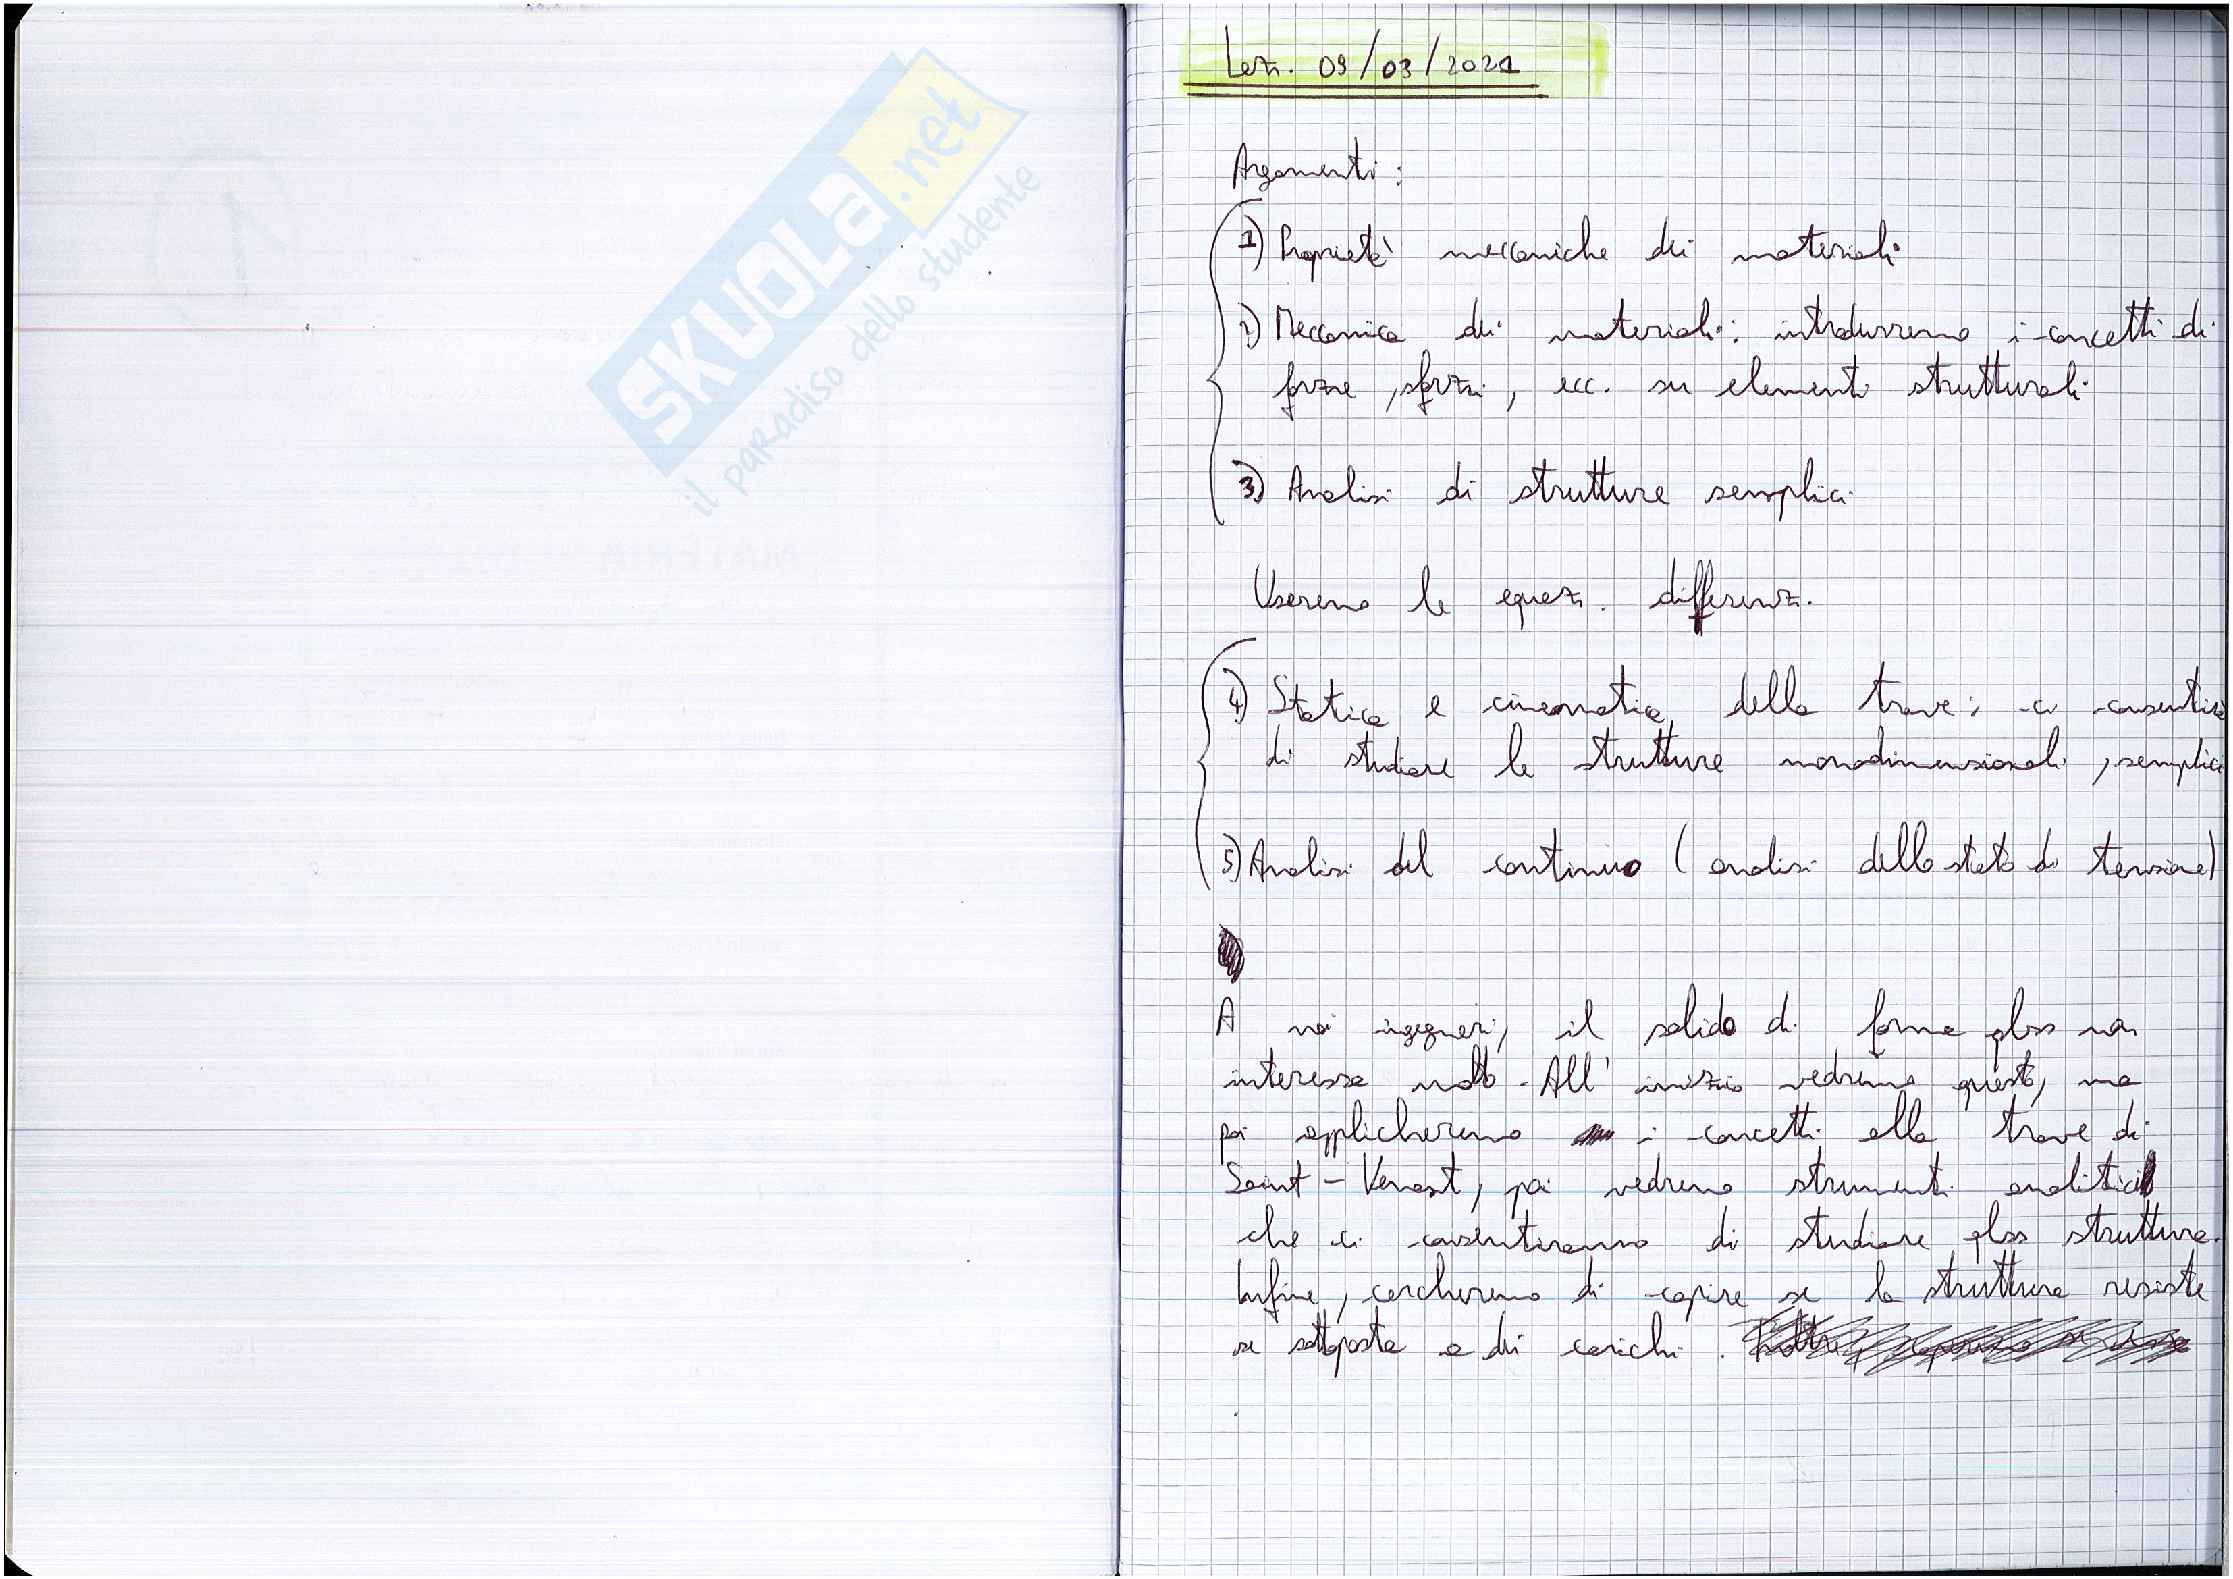 SKUOLA.net
il paradiso dello studente
Lez. 09/03/2021
Argomenti:
1) Proprietà meccaniche dei materiali
2) Meccanica dei materiali: introdurremo i concetti di
forze, sforzi, ecc. su elementi strutturali
3) Analisi di strutture semplici
Useremo le equaz. differenz.
4) Statica e cinematica della trave: ci consentirà
di studiare le strutture monodimensionali, semplici
5) Analisi del continuo (analisi dello stato di tensione)
A noi ingegneri, il solido di forma qlss non
interessa molto. All'inizio vedremo questo, ma
poi applicheremo i concetti alla trave di
Saint-Venant, poi vedremo strumenti analitici
che ci consentiranno di studiare qlss struttura.
Infine, cercheremo di capire se la struttura resiste
se sottoposta a dei carichi.